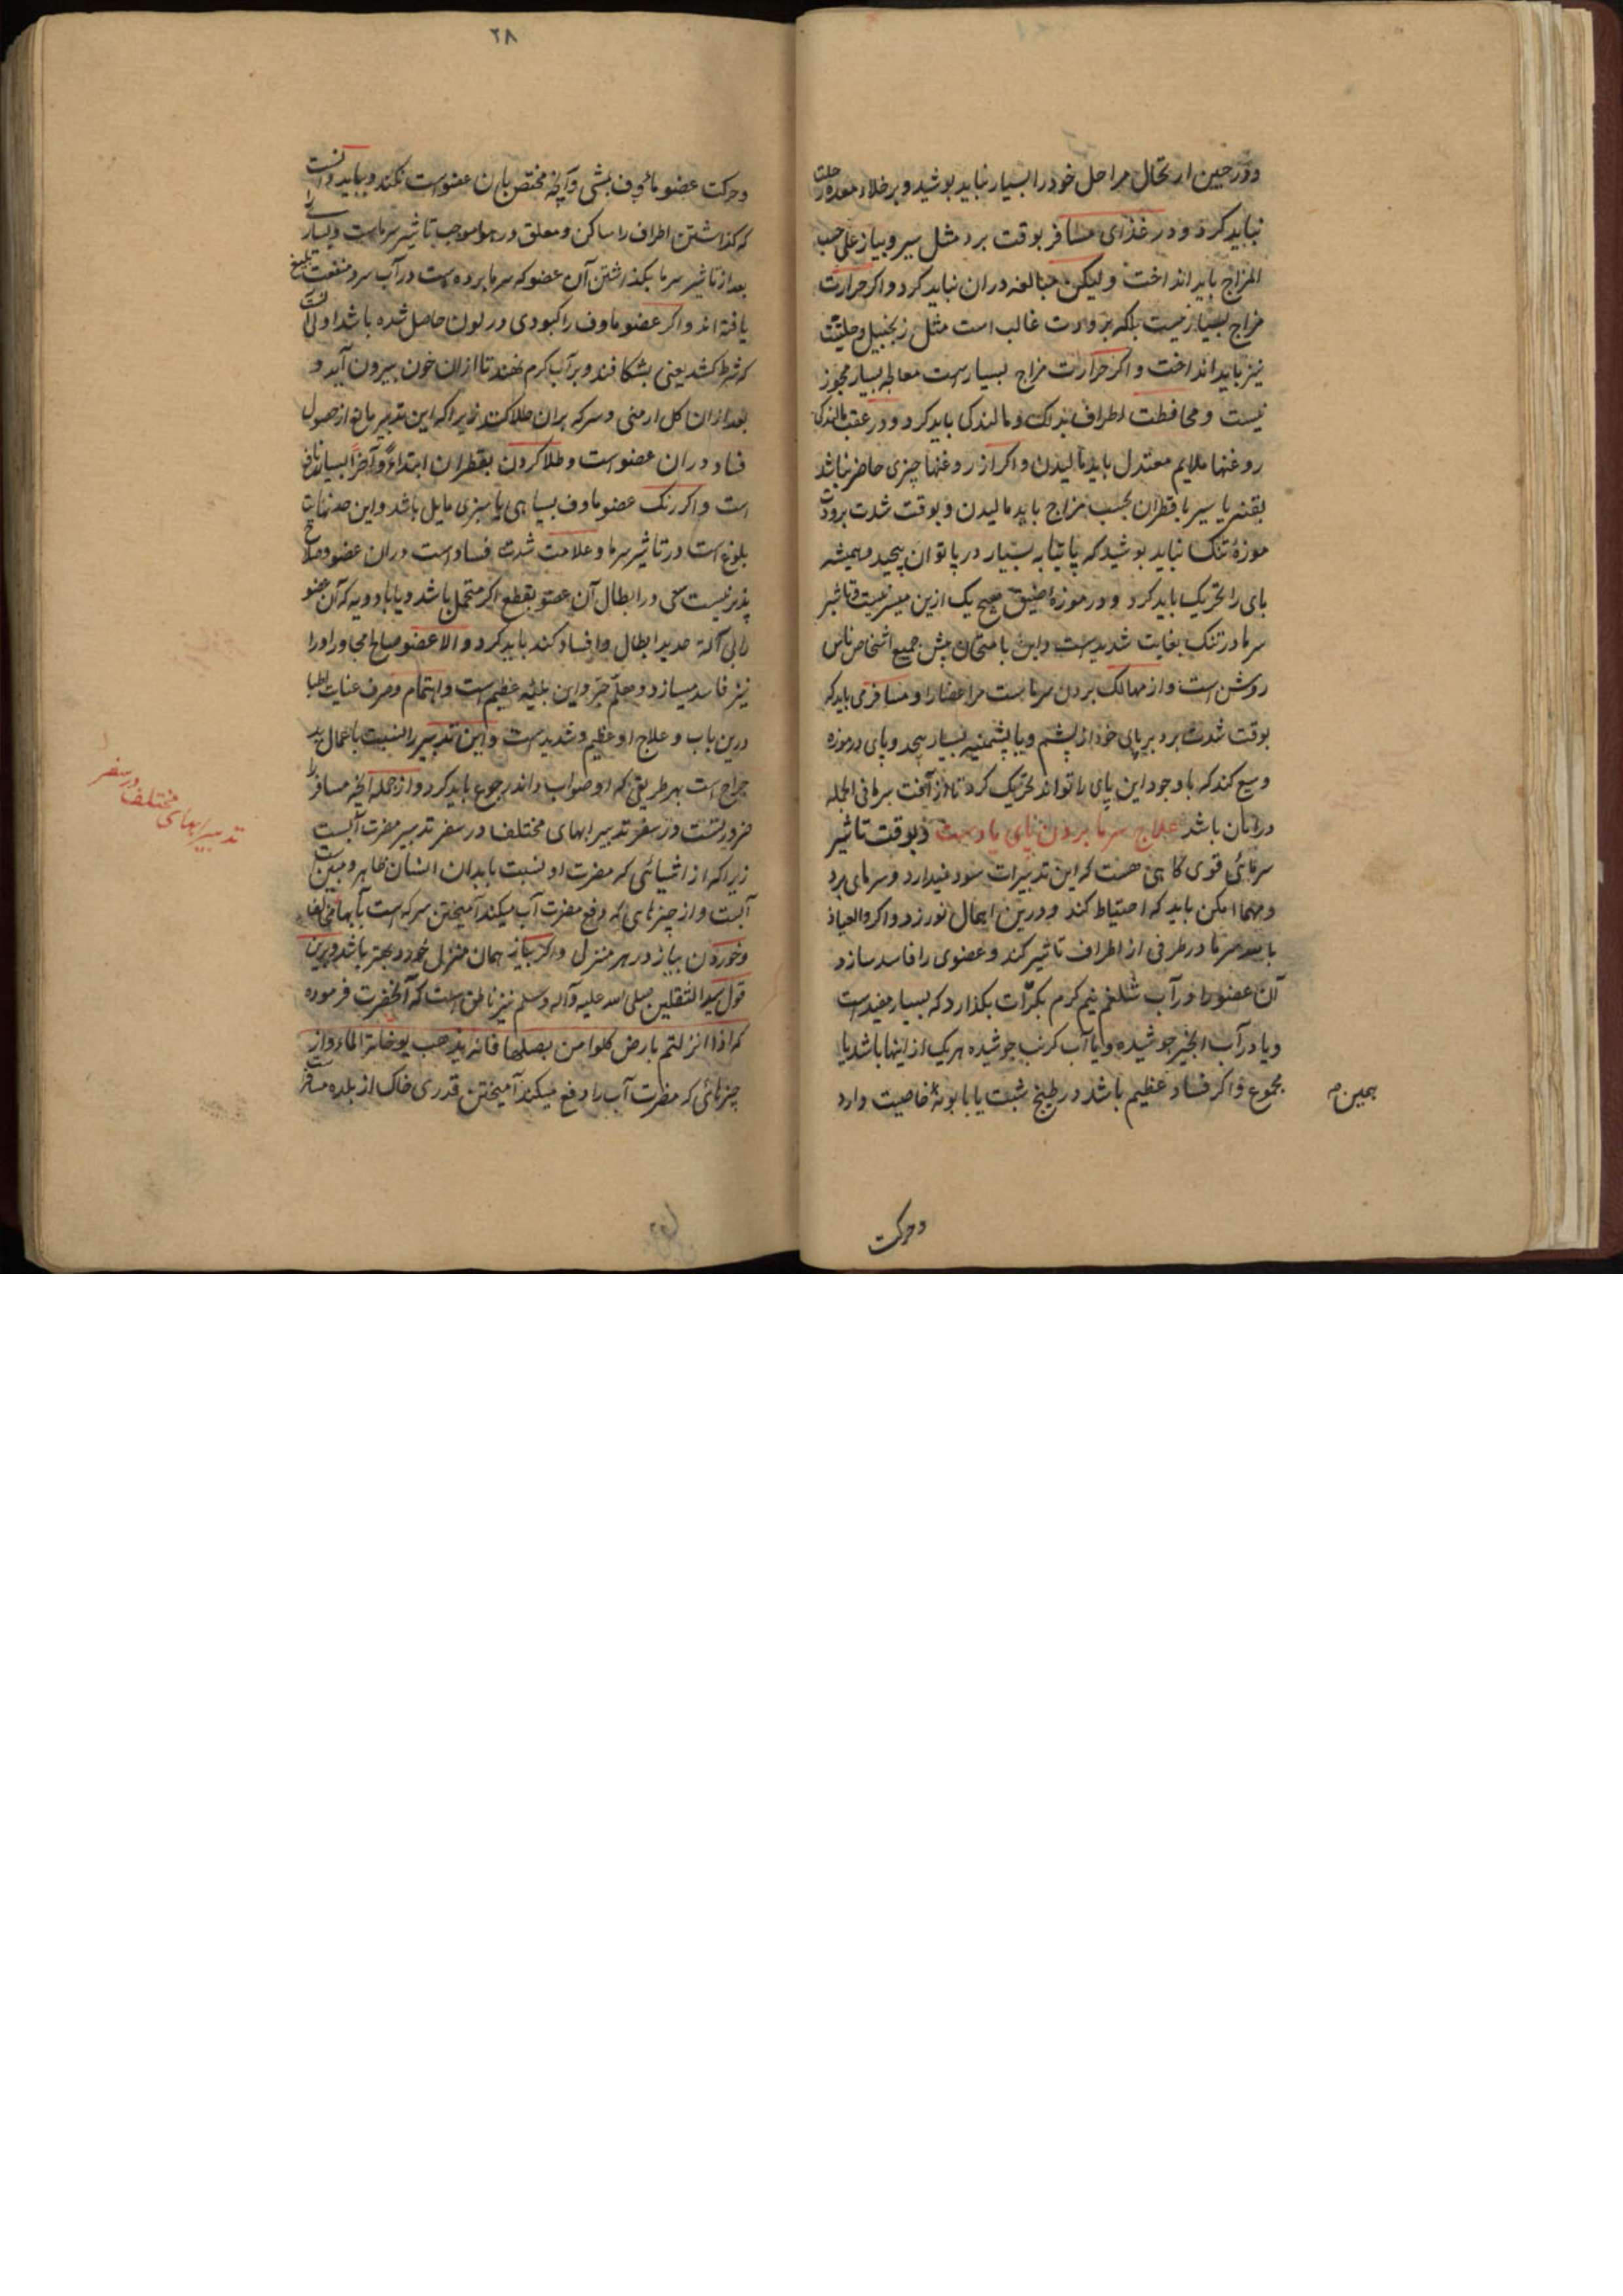 و در حین ارتحال مراحل خود را بسیار نباید پوشید و بر خلاء معده رحلت
نباید کرد و در غذای مسافر بوقت برد مثل سیر و پیاز علی حسب
المزاج باید انداخت ولیکن مبالغه دران نباید کرد و اکر حرارت
مزاج بسیار نیست بلکه برودت غالب است مثل زنجبیل و حلتیت
نیز باید انداخت و اکر حرارت مزاج بسیارست معالجه بسیار مجوز
نیست و محافظت اطراف بدلک و مالندکی باید کرد و در عقب مالندکی
روغنها ملایم معتدل باید مالیدن و اکر از روغنها چیزی حاضر نباشد
یا سیر یا قطران بحسب مزاج باید مالیدن و بوقت شدت برودت
موزهٔ تنک نباید پوشید که پاتیابه بسیار در پا توان پیچید و همیشه
پای را تحریک باید کرد و در موزه اضیق هیچ یک ازین میسر نیست و تاثیر
سرما در تنک بغایت شدیدست و این بامتحان پیش جمیع اشخاص ناس
روشن است و از مهالک بردن سرماست مر اعضا را و مسافر می باید که
بوقت شدت برد بر پای خود از پشم و یا پشمینه بسیار پیچد و پای در موزه
وسیع کند که با وجود این پای را تواند تحریک کرد تا از آفت سرما فی الجمله
در امان باشد علاج سرما بردن پای یا دست و بوقت تاثیر
سرمائی قوی کاهی هست که این تدبیرات سود نمیدارد و سرمای برد
و مهما امکن باید که احتیاط کند و درین اهمال نورزد و اکر والعیاذ
بالله سرما در طرفی از اطراف تاثیر کند و عضوی را فاسد سازد
آن عضو را در آب شلغم نیم کرم بکرّات بکذارد که بسیار مفیدست
و یا در آب انجیر جوشیده و یا آب کرنب جوشیده هر یک از اینها باشد یا
مجموع و اکر فساد عظیم باشد در طبخ شبت یا بابونهٔ خاصیت دارد
و حرکت
۲۸
و حرکت عضو مأوف بمشی و آنچه مختص بان عضوست نکند و بباید دانست
که کذاشتن اطراف را ساکن و معلق در هوا موجب تاثیر سرماست و بسیاری
بعد از تاثیر سرما بکذرشتن آن عضو که سرما برده است در آب سرد منفعت بلیغ
یافته اند و اکر عضو ماوف را کبودی در لون حاصل شده باشد اولی آنست
که شرط کشد یعنی بشکافند و بر آب کرم نهند تا ازان خون بیرون آید و
بعد ازان کل ارمنی و سرکه بران طلا کنند زیرا که این تدبیر مانع از حصول
فساد دران عضو است و طلا کردن بقطران ابتداءً و آخرًا بسیار نافع
است و اکر رنک عضو ماوف بسیاهی یا سبزی مایل باشد و این حد
بلوغ است در تاثیر سرما و علامت شدت فسادست دران عضو و صلاح
پذیر نیست سعی در ابطال آن عضو بقطع اکر متحمل باشد و یا بادویه که آن عضو
را بی آلهٔ حدید ابطال و افساد کند باید کرد و الا عضو صالح مجاور او را
نیز فاسد میسازد و هلمّ جرّ و این بلیّه عظیم است و اهتمام و صرف عنایت اطبا
درین باب و علاج او عظیم و شدیدست و این تدبیر را النسبت باعمال ید
جراح است بهر طریقی که او صواب داند رجوع باید کرد و از جمله آنچه مسافر را
ضروریست در سفر تدبیر ابهای مختلف در سفر تدبیر مضرت آبست
زیرا که از اشیائی که مضرت او نسبت بابدان انسان ظاهر و مبین است
آبست و از چیزهای که دفع مضرت آب میکند آمیختن سرکه است بآبها
و خوردن پیاز در هر منزل و اکر پیاز همان منزل خورد بهتر باشد و برین
قول سید الثقلین صلی الله علیه وآله وسلم نیز ناطق است که آنحضرت فرموده
که اذا انزلتم بارض کلوا من بصلها فانه یذهب الماء و از
چیزهائی که مضرت آب را دفع میکند آمیختن قدری خاک از بلده مسافر
تدبیر ابهای مختلف در سفر